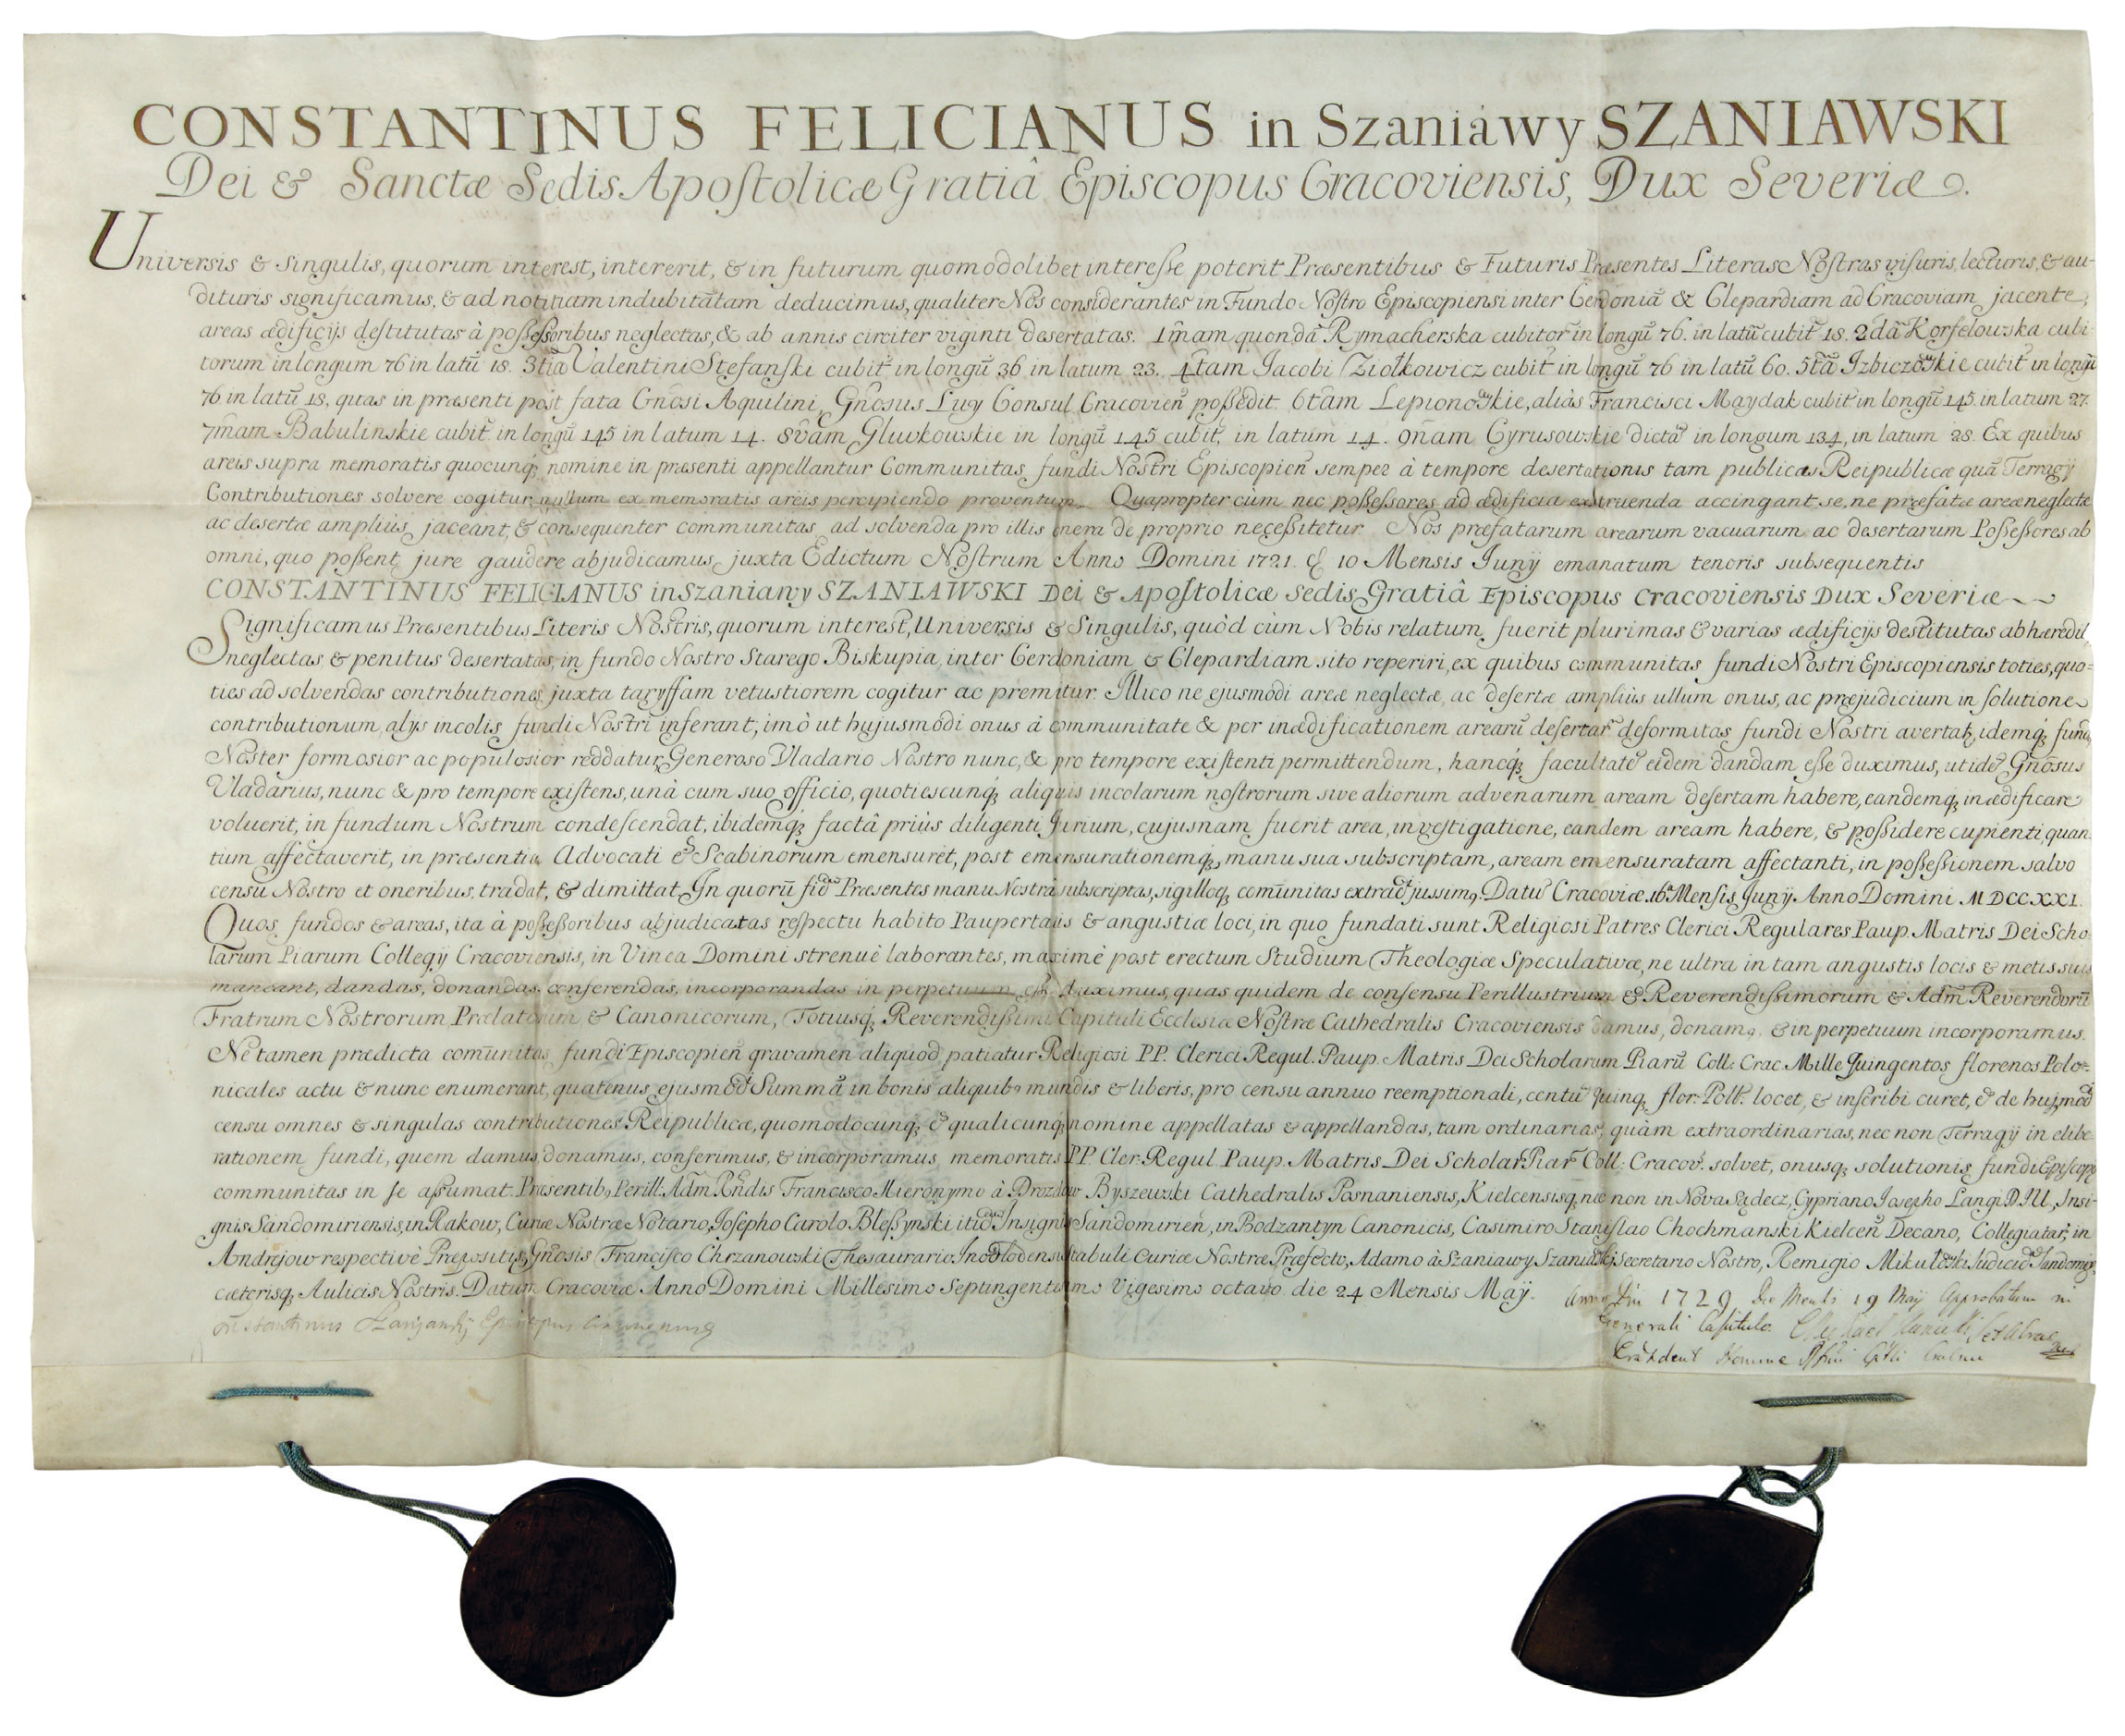 CONSTANTINUS FELICIANUS in Szaniawy SZANIAWSKI
Dei & Sanctæ Sedis Apostolicæ Gratiâ Episcopus Cracoviensis, Dux Severiæ.
Universis & Singulis, quorum interest, intererit, & in futurum quomodolibet interesse poterit Præsentibus & Futuris Præsentes Literas Nostras visuris, lecturis, & au-
dituris significamus, & ad notitiam indubitatam deducimus, qualiter Nos considerantes in Fundo Nostro Episcopiensi inter Cerdoniã & Clepardiam ad Cracoviam jacente,
areas ædificijs destitutas à possessoribus neglectas, & ab annis circiter viginti desertatas. 1mam quondã Rymacherska cubitor in longũ 76. in latũ cubit 18. 2dã Korfelowska cubi-
torum in longum 76 in latũ 18. 3tiã Valentini Stefanski cubit in longũ 36 in latum 23. 4tam Jacobi Ziołkowicz cubit in longũ 76 in latũ 60. 5tã Izbiczowskie cubit in longũ
76 in latũ 18, quas in præsenti post fata Gnosi Aquilini, Gnosus Luy Consul Cracovien possedit. 6tam Lepionowskie, aliàs Francisci Maydak cubit in longũ 145. in latum 27.
7mam Babulinskie cubit in longũ 145 in latum 14. 8vam Gluvkowskie in longũ 145 cubit, in latum 14. 9nam Cyrusowskie dictã in longum 134, in latum 28. Ex quibus
areis supra memoratis quocunq; nomine in præsenti appellantur Communitas fundi Nostri Episcopien semper à tempore desertationis tam publicas Reipublicæ quã Terragij
Contributiones solvere cogitur, nullum ex memoratis areis percipiendo proventum. Quapropter cùm nec possessores ad ædificia extruenda accingant se, ne præfatæ areæ neglectæ
ac desertæ ampliùs jaceant, & consequenter communitas ad solvenda pro illis onera de proprio necessitetur. Nos præfatarum arearum vacuarum ac desertarum Possessores ab
omni, quo possent jure gaudere abjudicamus, juxta Edictum Nostrum Anno Domini 1721. d 10 Mensis Junij emanatum tenoris subsequentis
CONSTANTINUS FELICIANUS in Szaniawy SZANIAWSKI Dei & Apostolicæ Sedis Gratiâ Episcopus Cracoviensis Dux Severiæ
Significamus Præsentibus Literis Nostris, quorum interest, Universis & Singulis, quòd cùm Nobis relatum fuerit plurimas & varias ædificijs destitutas ab hæredib,
neglectas & penitus desertatas, in fundo Nostro Starego Biskupia, inter Cerdoniam & Clepardiam sito reperiri, ex quibus communitas fundi Nostri Episcopiensis toties, quo-
ties ad solvendas contributiones juxta taryffam vetustiorem cogitur ac premitur. Illico ne ejusmodi areæ neglectæ, ac desertæ ampliùs ullum onus, ac præjudicium in solutione
contributionum alys incolis fundi Nostri inferant, imò ut hujusmodi onus à communitate & per inædificationem arearũ desertar deformitas fundi Nostri avertat, idemq; fund
Noster formosior ac populosior reddatur, Generoso Vladario Nostro nunc, & pro tempore existenti permittendum, hancq; facultatẽ eidem dandam esse duximus, ut idẽ Gnosus
Vladarius, nunc & pro tempore existens, unà cum suo officio, quotiescunq; aliquis incolarum nostrorum sive aliorum advenarum aream desertam habere, eandemq; inædificare
voluerit, in fundum Nostrum condescendat, ibidemq; factâ priùs diligenti Jurium, cujusnam fuerit area, investigatione, eandem aream habere, & possidere cupienti, quan-
tum affectaverit, in præsentia Advocati & Scabinorum emensuret, post emensurationemq; manu sua subscriptam, aream emensuratam affectanti, in possessionem salvo
censu Nostro et oneribus, tradat, & dimittat. In quorũ fidẽ Præsentes manu Nostrâ subscriptas, sigilloq; comunitas extradi jussimq. Datũ Cracoviæ 16 Mensis Junij Anno Domini MDCCXXI.
Quos fundos & areas, ita à possessoribus abjudicatas respectu habito Paupertatis & angustiæ loci, in quo fundati sunt Religiosi Patres Clerici Regulares Paup. Matris Dei Scho-
larum Piarum Collegij Cracoviensis, in Vinea Domini strenuè laborantes, maximè post erectum Studium Theologiæ Speculativæ, ne ultra in tam angustis locis & metis suis
maneant, dandas, donandas, conferendas, incorporandas in perpetuum esse duximus, quas quidem de consensu Perillustrium & Reverendissimorum & Adm Reverendorũ
Fratrum Nostrorum Prælatorum & Canonicorum, Totiusq; Reverendissimi Capituli Ecclesiæ Nostræ Cathedralis Cracoviensis damus, donamq, & in perpetuum incorporamus.
Ne tamen prædicta comunitas fundi Episcopien gravamen aliquod patiatur Religiosi PP. Clerici Regul. Paup. Matris Dei Scholarum Piarũ Coll: Crac. Mille Quingentos florenos Polo-
nicales actu & nunc enumerant, quatenus ejusmodi Summã in bonis aliquibq mundis & liberis, pro censu annuo reemptionali, centũ quinq; flor. Poll. locet, & inscribi curet, & de hujmodi
censu omnes & singulas contributiones Reipublicæ, quomodocunq; & qualicunq; nomine appellatas & appellandas, tam ordinarias, quàm extraordinarias, nec non Terragij in elibe-
rationem fundi, quem damus, donamus, conferimus, & incorporamus memoratis PP Cler. Regul. Paup. Matris Dei Scholar Piar Coll: Cracov. solvet, onusq; solutionis fundi Episcop
communitas in se assumat. Præsentibq Perill. Adm. Rndis Francisco Hieronymo à Drozdow Byszewski Cathedralis Posnaniensis, Kielcensisq, nec non in Nova Sądecz, Cypriano Josepho Langi D.I.U, Insi-
gnis Sandomiriensis, in Rakow, Curiæ Nostræ Notario, Josepho Carolo Blessynski itidẽ Insignis Sandomirien, in Bodzantyn Canonicis, Casimiro Stanislao Chochmanski Kielcen Decano, Collegiatar, in
Andrejow respectivè Præpositis, Gnosis Francisco Chrzanowski Thesaurario, Stabuli Curiæ Nostræ Præfecto, Adamo à Szaniawy Szaniawski Secretario Nostro, Remigio Mikułowski
cæterisq; Aulicis Nostris. Datum Cracoviæ Anno Domini Millesimo Septingentesimo Vigesimo octavo die 24 Mensis Maÿ.
Anno Dni 1729 Die Mensis 19 Maij Approbatum in
Constantinus Szaniawski Episcopus Cracoviensis
Generali Capitulo.